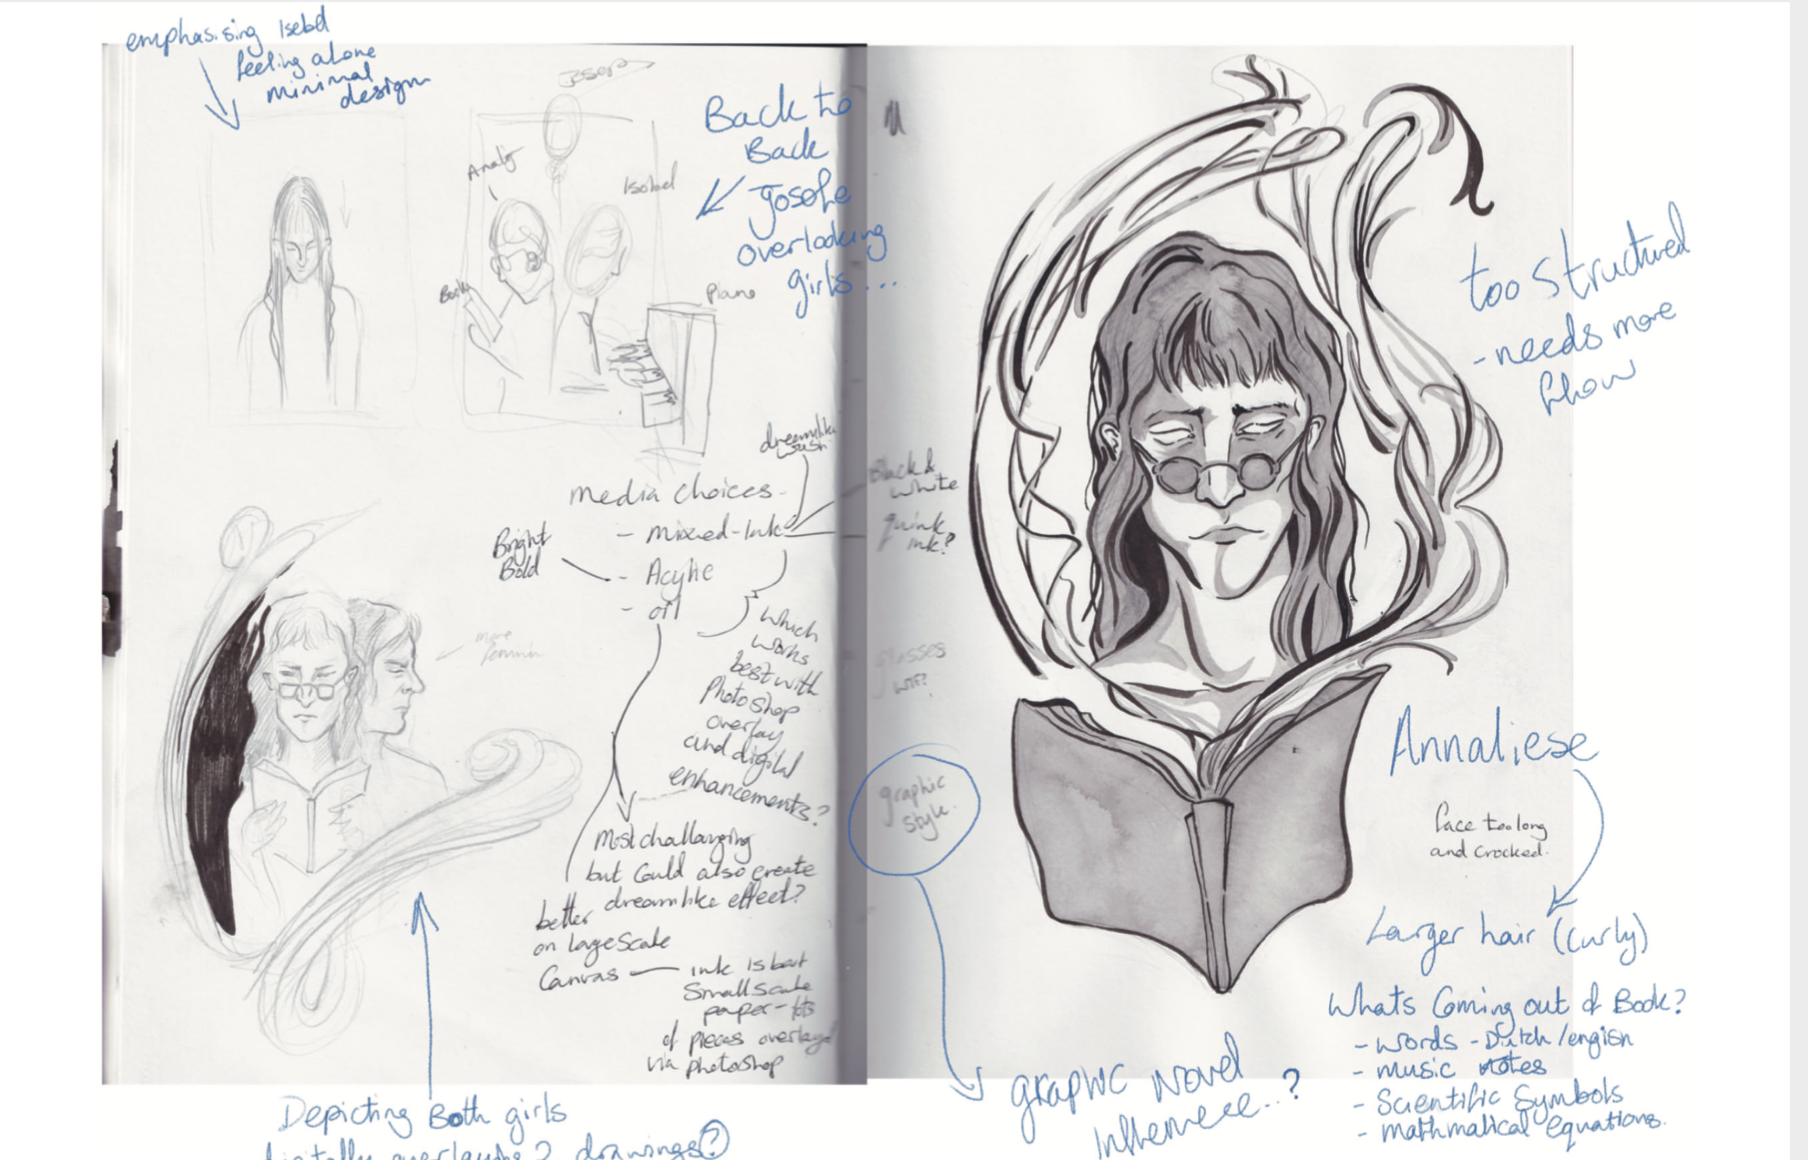 emphasising Isebel
feeling alone
minimal
design
Josep
Back to
Back
Josohe
overlooking
girls...
Isobel
Piano
dreamlike
wash
media choices-
- mixed-Ink
- Acylic
- oil
Bright
Bold
Black &
white
quink
ink?
which
works
best with
Photoshop
overlay
and digital
enhancements?
more
feminin
glasses
WTF?
graphic
style.
Most challanging
but Could also create
dreamlike effect?
better
on large scale
Canvas — ink is best
Small scale
paper - lots
of pieces overlayed
via photoshop
too structured
- needs more
flow
Annaliese
face too long
and crocked.
Larger hair (Curly)
Whats Coming out of Book?
- words - Dutch/engish
- music notes
- Scientific Symbols
- mathmatical equations.
graphic Novel
Influence..?
Depicting Both girls
digitally overlaying 2 drawings?